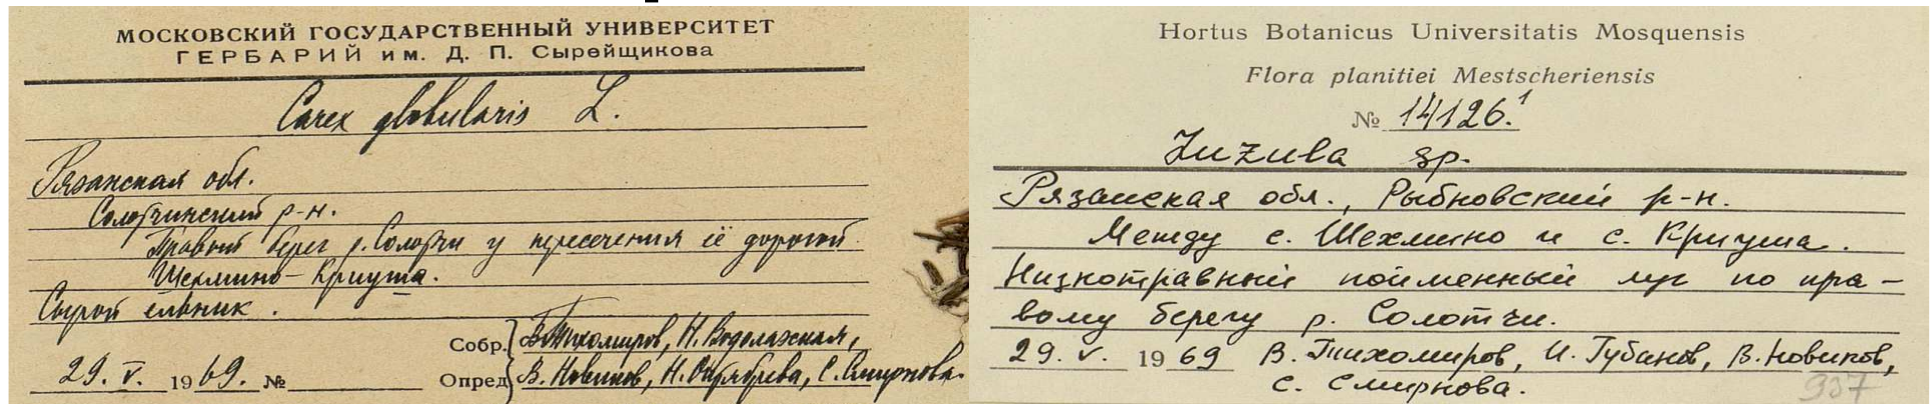 МОСКОВСКИЙ ГОСУДАРСТВЕННЫЙ УНИВЕРСИТЕТ
ГЕРБАРИЙ им. Д. П. Сырейщикова
Carex globularis L.
Рязанская обл.
Солотчинский р-н.
Правый берег р. Солотчи у пересечения её дорогой
Шехмино – Криуша.
Сырой ельник.
Собр. В. Тихомиров, Н. Водолазская,
29. V. 1969. № Опред. В. Новиков, Н. Октябрева, С. Смирнова.
Hortus Botanicus Universitatis Mosquensis
Flora planitiei Mestscheriensis
№ 14126.¹
Luzula sp.
Рязанская обл., Рыбновский р-н.
Между с. Шехмино и с. Криуша.
Низкотравный пойменный луг по пра-
вому берегу р. Солотчи.
29. V. 1969 В. Тихомиров, И. Губанов, В. Новиков,
С. Смирнова.
937